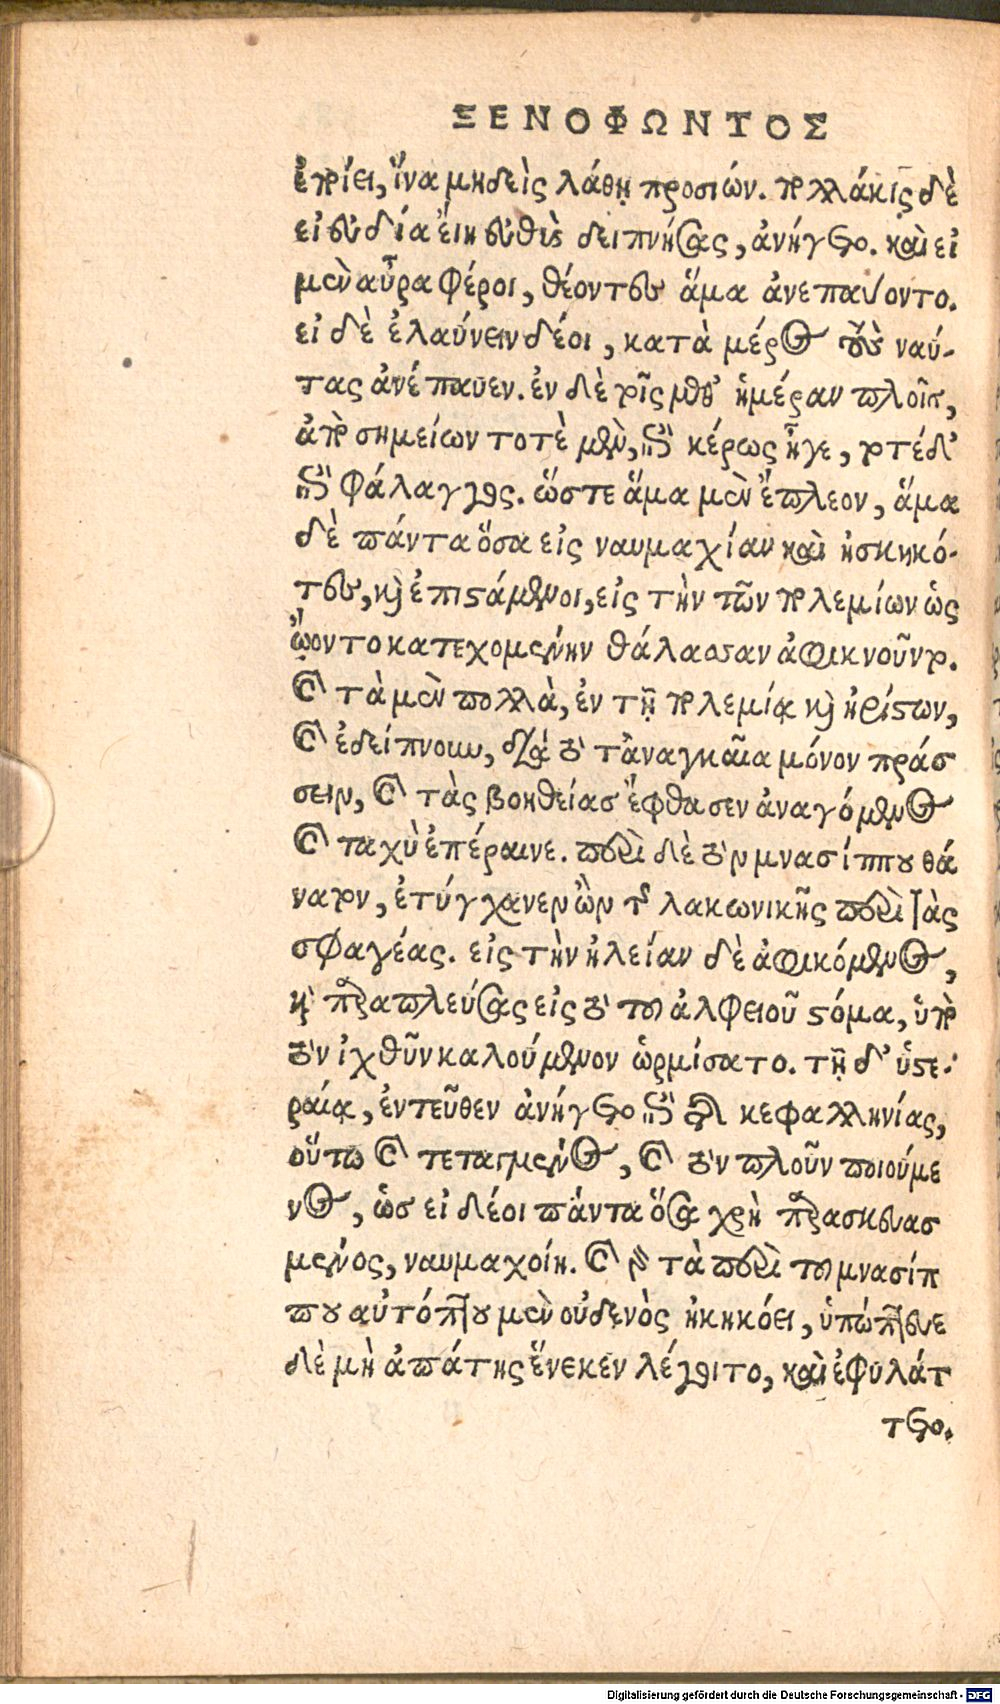 ΞΕΝΟΦΩΝΤΟΣ
ἐποίει, ἵνα μηδεὶς λάθῃ προσιών. πολλάκις δὲ
εἰ εὐδία εἴη εὐθὺς δειπνήσας, ἀνήγετο. καὶ εἰ
μὲν αὖρα φέροι, θέοντες ἅμα ἀνεπαύοντο.
εἰ δὲ ἐλαύνειν δέοι, κατὰ μέρος τοὺς ναύ-
τας ἀνέπαυεν. ἐν δὲ τοῖς μεθ' ἡμέραν πλοῖς,
ἀπὸ σημείων τοτὲ μὲν, ἐπὶ κέρως ἦγε, τοτέ δ'
ἐπὶ φάλαγγος. ὥστε ἅμα μὲν ἔπλεον, ἅμα
δὲ πάντα ὅσα εἰς ναυμαχίαν καὶ ἠσκηκό-
τες, καὶ ἐπιστάμενοι, εἰς τὴν τῶν πολεμίων ὡς
ᾤοντο κατεχομένην θάλασσαν ἀφικνοῦντο.
καὶ τὰ μὲν πολλὰ, ἐν τῇ πολεμίᾳ καὶ ἠρίστων,
καὶ ἐδείπνουν, διὰ τὸ τἀναγκαῖα μόνον πράσ
σειν, καὶ τὰς βοηθείας ἔφθασεν ἀναγόμενος
καὶ ταχὺ ἐπέραινε. περὶ δὲ τὸν μνασίππου θά
νατον, ἐτύγχανεν ὢν τῆς λακωνικῆς περὶ τὰς
σφαγέας. εἰς τὴν ἠλείαν δὲ ἀφικόμενος,
καὶ παραπλεύσας εἰς τὸ τοῦ ἀλφειοῦ στόμα, ὑπὸ
τὸν ἰχθῦν καλούμενον ὡρμίσατο. τῇ δ' ὑστε-
ραίᾳ, ἐντεῦθεν ἀνήγετο ἐπὶ τῆς κεφαλληνίας,
οὕτω καὶ τεταγμένος, καὶ τὸν πλοῦν ποιούμε
νος, ὡς εἰ δέοι πάντα ὅσα χρὴ παρασκευασ
μένος, ναυμαχοίη. καὶ γὰρ τὰ περὶ τοῦ μνασίπ
που αὐτόπτου μὲν οὐδενὸς ἠκηκόει, ὑπώπτευε
δὲ μὴ ἀπάτης ἕνεκεν λέγοιτο, καὶ ἐφυλάτ
τετο.
Digitalisierung gefördert durch die Deutsche Forschungsgemeinschaft - DFG